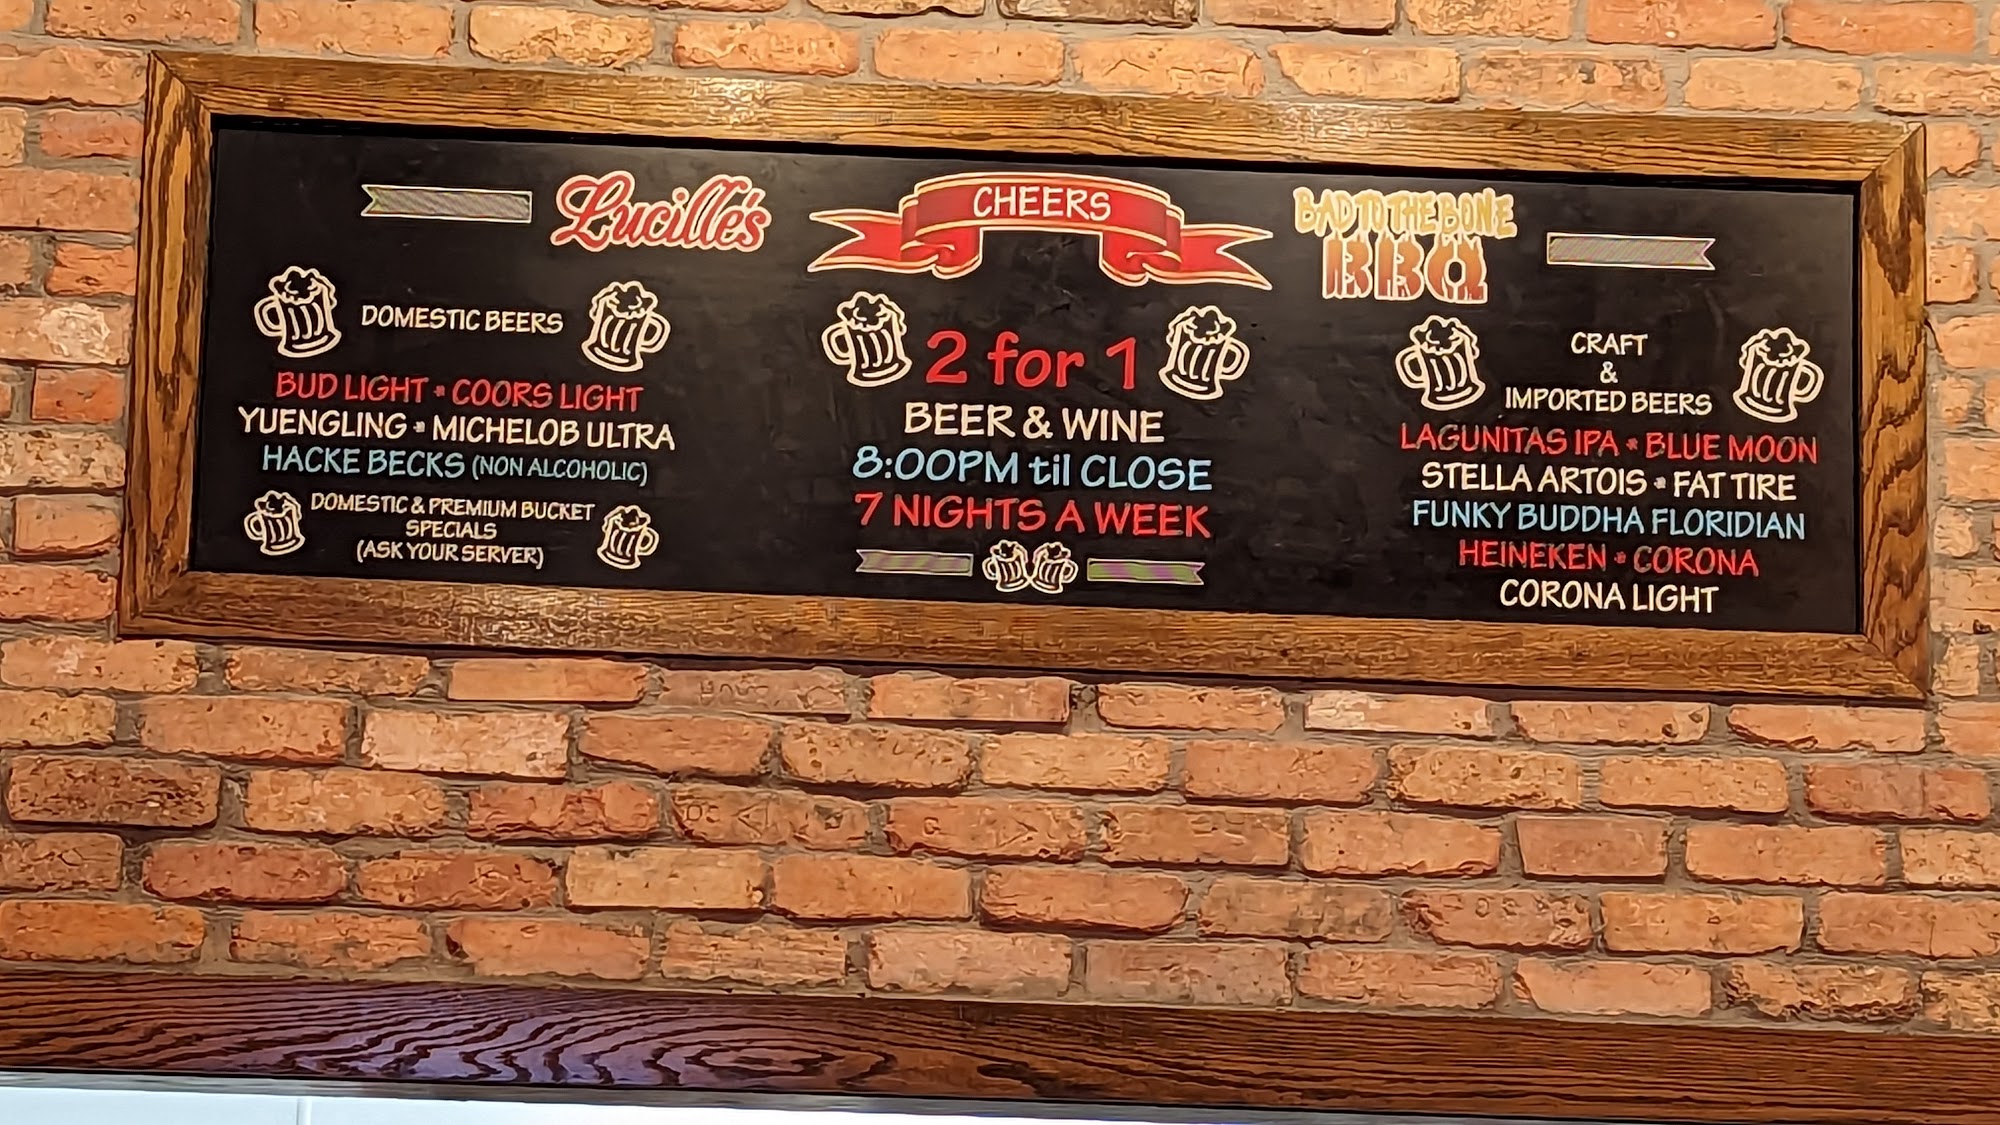 Lucille's
CHEERS
BAD TO THE BONE
BBQ
DOMESTIC BEERS
BUD LIGHT • COORS LIGHT
YUENGLING • MICHELOB ULTRA
HACKE BECKS (NON ALCOHOLIC)
DOMESTIC & PREMIUM BUCKET
SPECIALS
(ASK YOUR SERVER)
2 for 1
BEER & WINE
8:00PM til CLOSE
7 NIGHTS A WEEK
CRAFT
&
IMPORTED BEERS
LAGUNITAS IPA • BLUE MOON
STELLA ARTOIS • FAT TIRE
FUNKY BUDDHA FLORIDIAN
HEINEKEN • CORONA
CORONA LIGHT